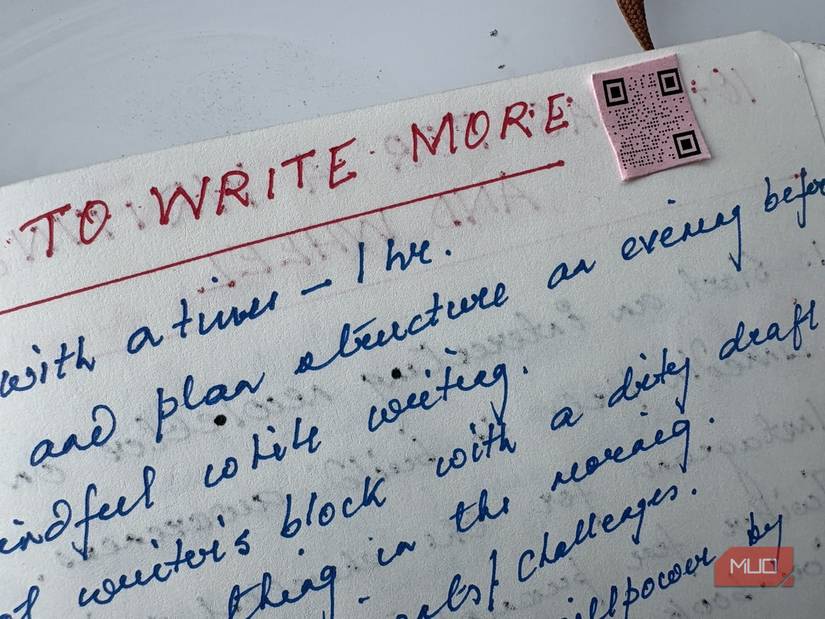 TO WRITE MORE
with a timer - 1 hr.
and plan structure an evening before
indful while writing.
of writer's block with a dirty draft
thing in the morning.
/ challenges.
willpower by
MUO